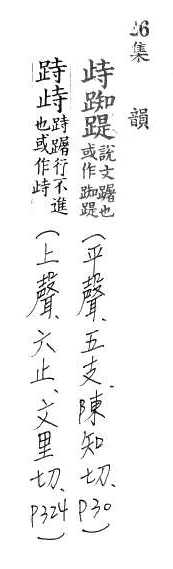 26集 韻
歭踟踶 説文躇也或作踟踶 (平聲、五支、陳知切、P30)
跱歭 跱躇行不進也或作歭 (上聲、六止、文里切、P324)